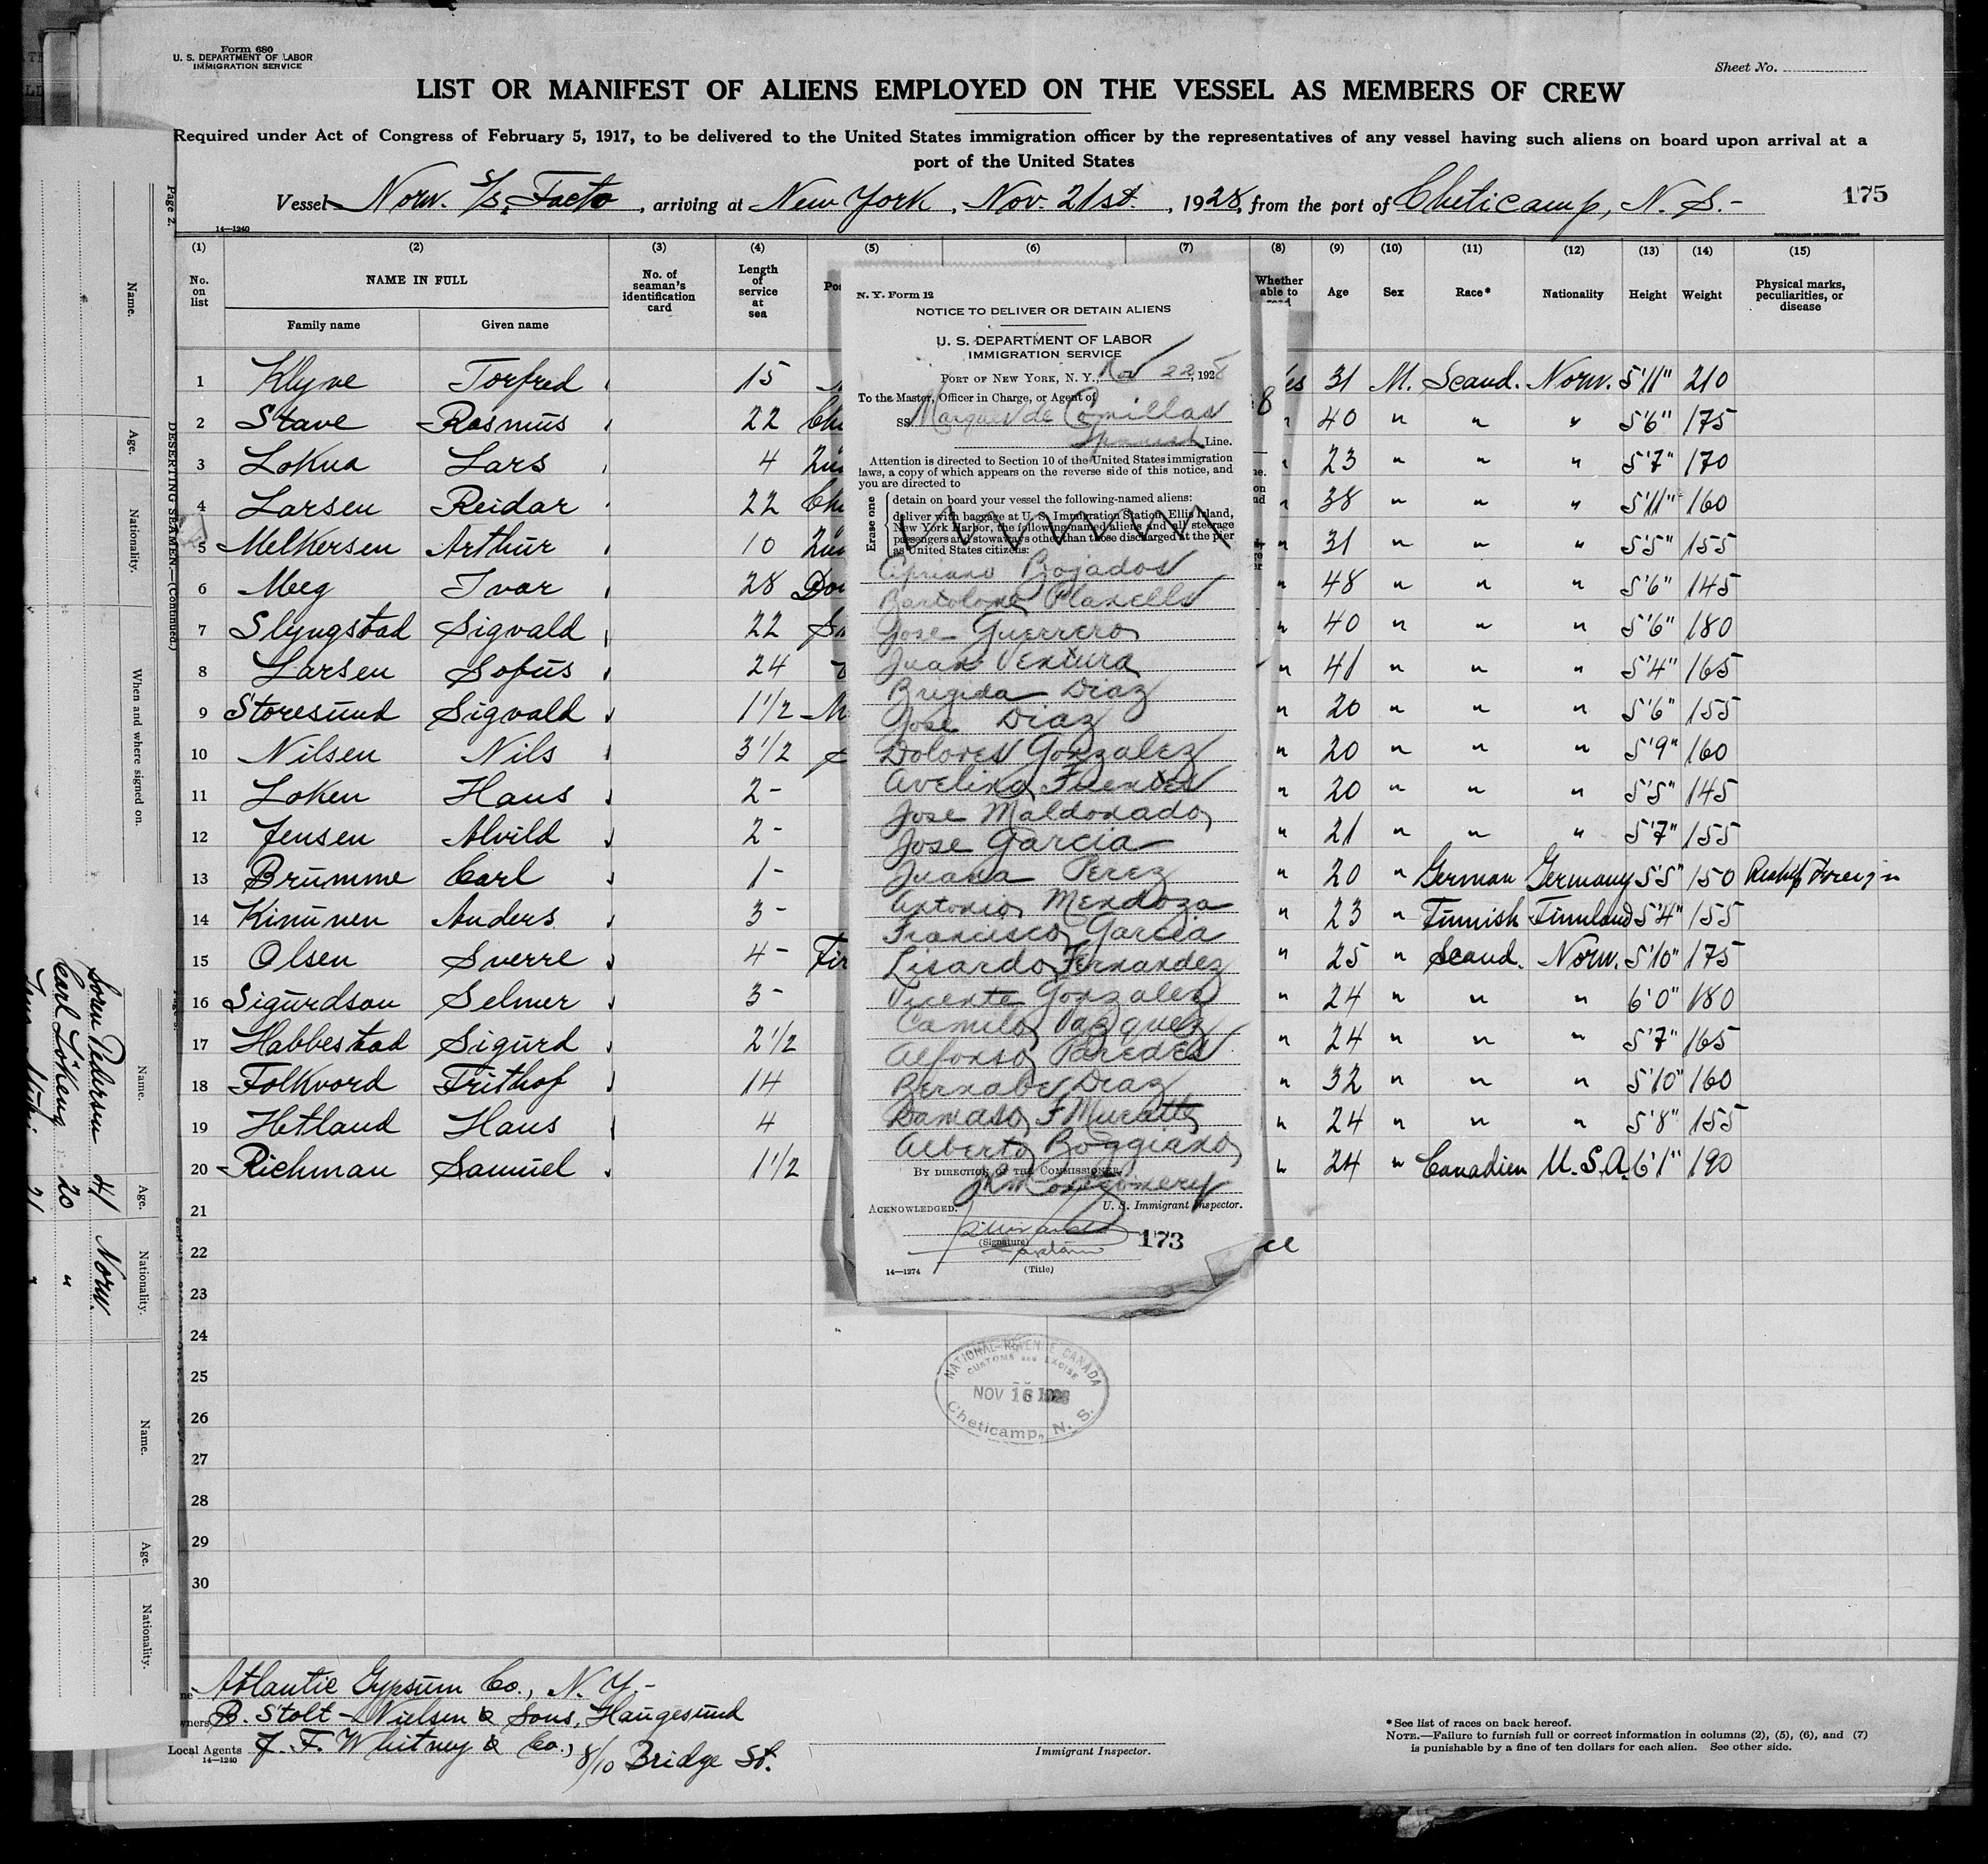 Form 680
U. S. DEPARTMENT OF LABOR
IMMIGRATION SERVICE
Sheet No.
LIST OR MANIFEST OF ALIENS EMPLOYED ON THE VESSEL AS MEMBERS OF CREW
Required under Act of Congress of February 5, 1917, to be delivered to the United States immigration officer by the representatives of any vessel having such aliens on board upon arrival at a
port of the United States
Vessel Norw. S/S. Facto, arriving at New York, Nov. 21st., 1928, from the port of Cheticamp, N. S.-
175
14—1240
(1) (2) (3) (4) (5) (6) (7) (8) (9) (10) (11) (12) (13) (14) (15)
No. on list
NAME IN FULL
Family name
Given name
No. of seaman's identification card
Length of service at sea
Whether able to
Age
Sex
Race*
Nationality
Height
Weight
Physical marks, peculiarities, or disease
1 Klyve Torfred 15 31 M. Scand. Norw. 5'11" 210
2 Stave Rasmus 22 40 " " " 5'6" 175
3 Lokna Lars 4 23 " " " 5'7" 170
4 Larsen Reidar 22 " 38 " " " 5'11" 160
5 Melkersen Arthur 10 " 31 " " " 5'5" 155
6 Meeg Ivar 28 " 48 " " " 5'6" 145
7 Slyngstad Sigvald 22 " 40 " " " 5'6" 180
8 Larsen Sofus 24 " 41 " " " 5'4" 165
9 Storesund Sigvald 1 1/2 " 20 " " " 5'6" 155
10 Nilsen Nils 3 1/2 " 20 " " " 5'9" 160
11 Loken Hans 2- " 20 " " " 5'5" 145
12 Jensen Alvild 2- " 21 " " " 5'7" 155
13 Brumme Carl 1- " 20 " German Germany 5'5" 150 Reship Foreign
14 Kinunen Anders 3- " 23 " Finnish Finnland 5'4" 155
15 Olsen Sverre 4- Fir " 25 " Scand. Norw. 5'10" 175
16 Sigurdson Selmer 3- " 24 " " " 6'0" 180
17 Habbestad Sigurd 2 1/2 " 24 " " " 5'7" 165
18 Folkvord Frithof 14 " 32 " " " 5'10" 160
19 Hetland Hans 4 " 24 " " " 5'8" 155
20 Richman Samuel 1 1/2 " 24 " Canadien U.S.A. 6'1" 190
21
22
23
24
25
26
27
28
29
30
N. Y. Form 12
NOTICE TO DELIVER OR DETAIN ALIENS
U. S. DEPARTMENT OF LABOR
IMMIGRATION SERVICE
PORT OF NEW YORK, N. Y., Nov 22, 1928
To the Master, Officer in Charge, or Agent of
SS Marques de Comillas
Spanish Line.
Attention is directed to Section 10 of the United States immigration
laws, a copy of which appears on the reverse side of this notice, and
you are directed to
Erase one
detain on board your vessel the following-named aliens:
deliver with baggage at U. S. Immigration Station, Ellis Island,
New York Harbor, the following-named aliens and all steerage
passengers and stowaways other than those discharged at the pier
as United States citizens:
Cipriano Bojados
Bartolome Planells
Jose Guerrero
Juan Ventura
Brigida Diaz
Jose Diaz
Dolores Gonzalez
Avelino Fuentes
Jose Maldonado
Jose Garcia
Juana Perez
Antonio Mendoza
Francisco Garcia
Lisardo Fernandez
Vicente Gonzalez
Camilo Vazquez
Alfonso Paredes
Bernabe Diaz
Damaso F Muratte
Alberto Boggiano
BY DIRECTION OF THE COMMISSIONER
Montgomery
U. S. Immigrant Inspector.
ACKNOWLEDGED:
(Signature)
Captain
(Title)
173
14—1274
NATIONAL REVENUE CANADA
CUSTOMS and EXCISE
NOV 16 1928
Cheticamp, N. S.
Atlantic Gypsum Co., N. Y.-
B. Stolt-Nielsen & Sons, Haugesund
Local Agents F. F. Whitney & Co., 8/10 Bridge St.
14—1240
Immigrant Inspector.
*See list of races on back hereof.
NOTE.—Failure to furnish full or correct information in columns (2), (5), (6), and (7)
is punishable by a fine of ten dollars for each alien. See other side.
Page 2.
DESERTING SEAMEN.—(Continued.)
Name.
Age.
Nationality.
When and where signed on.
Name.
Age.
Nationality.
Name.
Age.
Nationality.
Soren Pedersen 41 Norw.
Carl Lökeng 20 "